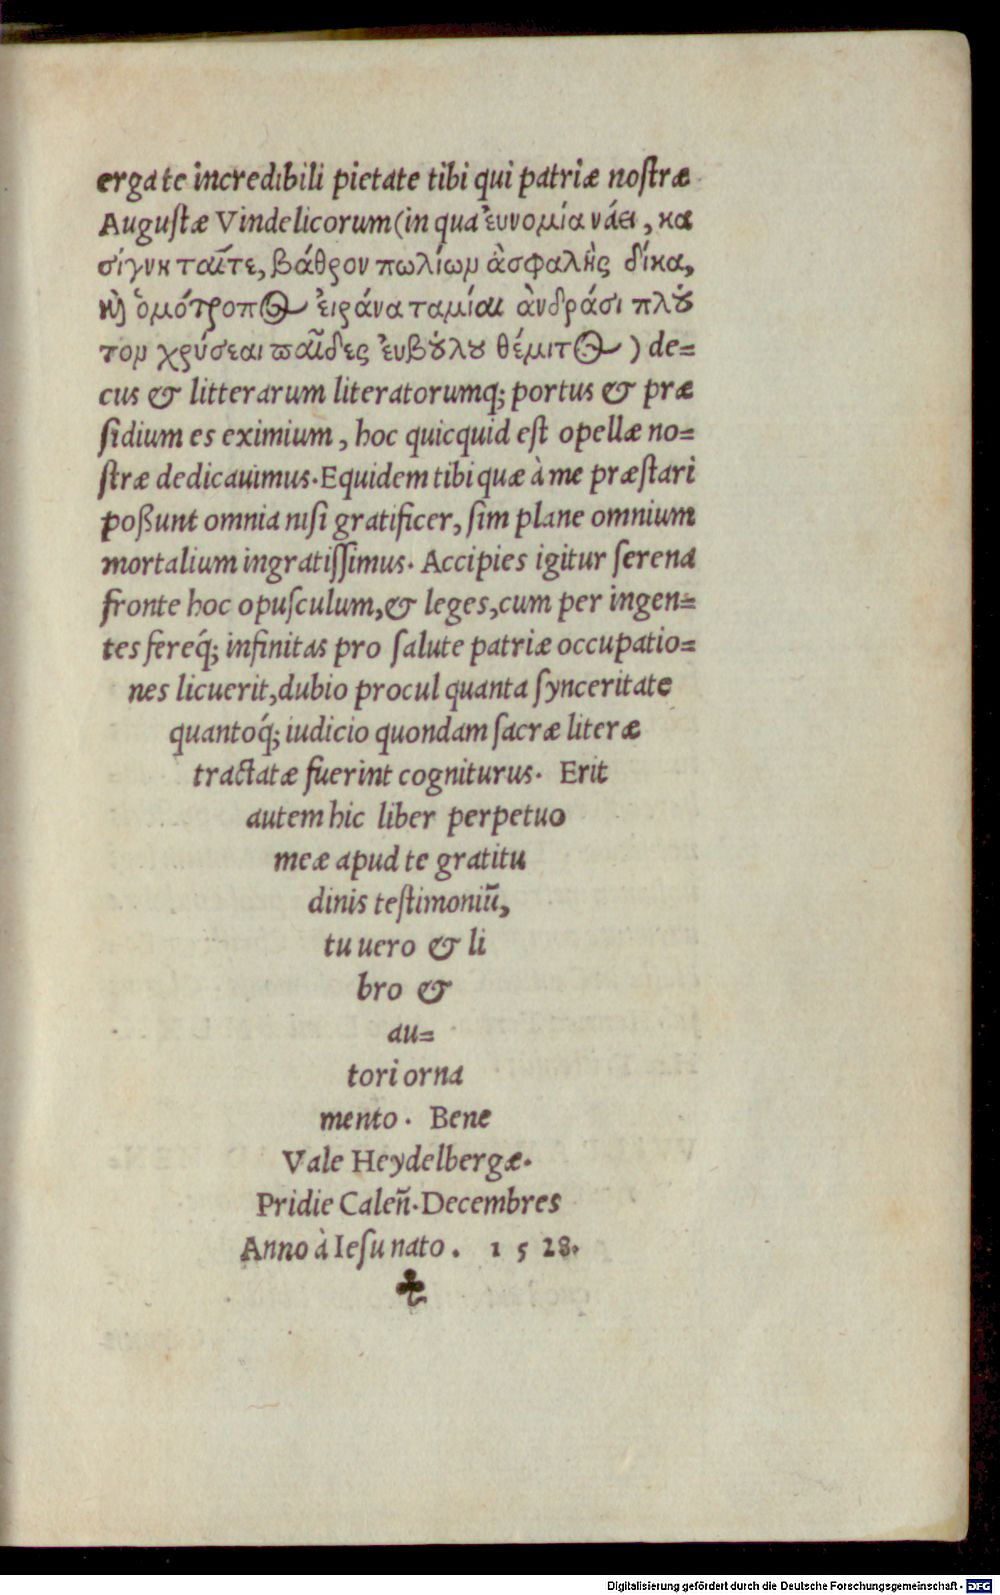 erga te incredibili pietate tibi qui patriæ nostræ
Augustæ Vindelicorum (in qua ἐυνομία νάει, κα
σίγνκ ταῖτε, βάθρον πωλίωμ ἀσφαλὴς δίκα,
κὶ ὁμότροπος ἐιράνα ταμίαι ἀνδράσι πλού
τομ χρύσεαι παῖδες ἐυβούλου θέμιτος) de=
cus & litterarum literatorumq; portus & præ
sidium es eximium, hoc quicquid est opellæ no=
stræ dedicauimus. Equidem tibi quæ à me præstari
poßunt omnia nisi gratificer, sim plane omnium
mortalium ingratissimus. Accipies igitur serena
fronte hoc opusculum, & leges, cum per ingen=
tes fereq́; infinitas pro salute patriæ occupatio=
nes licuerit, dubio procul quanta synceritate
quantoq́; iudicio quondam sacræ literæ
tractatæ fuerint cogniturus. Erit
autem hic liber perpetuo
meæ apud te gratitu
dinis testimoniū,
tu uero & li
bro &
au=
tori orna
mento. Bene
Vale Heydelbergæ.
Pridie Caleñ. Decembres
Anno à Iesu nato. 1528.
Digitalisierung gefördert durch die Deutsche Forschungsgemeinschaft - DFG